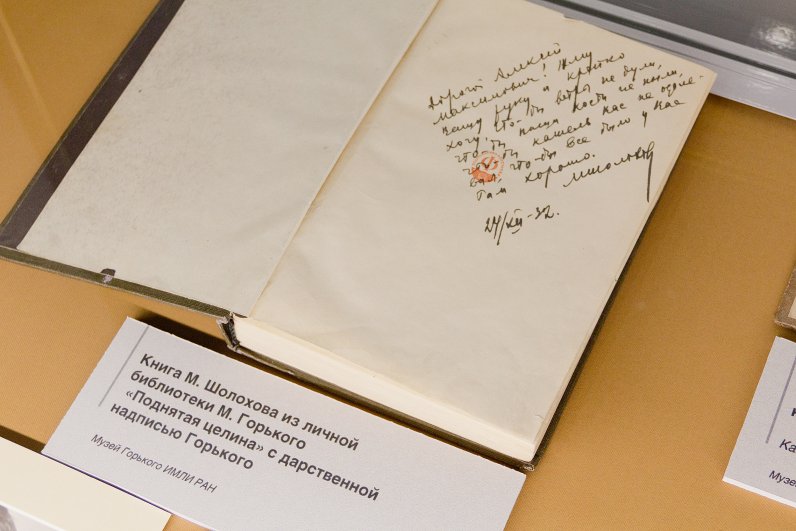 Дорогой Алексей
Максимович! Жму
Вашу руку и крепко
хочу, что-бы ветры не дули,
что-бы наши кости не ныли,
что-бы кашель нас не одоле-
вал, что-бы все было у нас
там хорошо.
М Шолохов
24/XII-32.
Книга М. Шолохова из личной
библиотеки М. Горького
«Поднятая целина» с дарственной
надписью Горького
Музей Горького ИМЛИ РАН
Ка
Музе